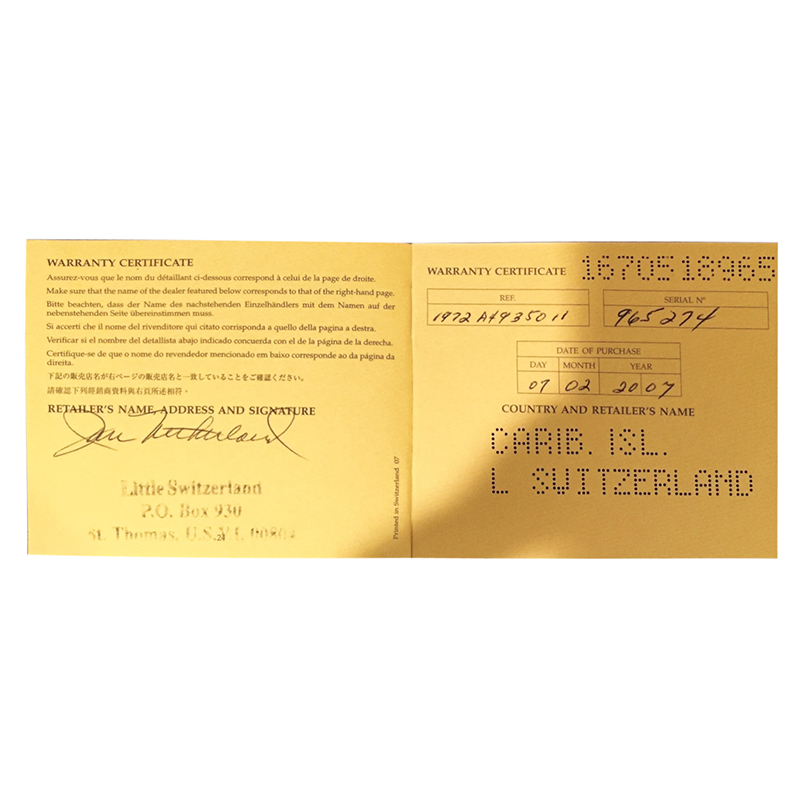 WARRANTY CERTIFICATE
Assurez-vous que le nom du détaillant ci-dessous correspond à celui de la page de droite.
Make sure that the name of the dealer featured below corresponds to that of the right-hand page.
Bitte beachten, dass der Name des nachstehenden Einzelhändlers mit dem Namen auf der
nebenstehenden Seite übereinstimmen muss.
Si accerti che il nome del rivenditore qui citato corrisponda a quello della pagina a destra.
Verificar si el nombre del detallista abajo indicado concuerda con el de la página de la derecha.
Certifique-se de que o nome do revendedor mencionado em baixo corresponde ao da página da
direita.
下記の販売店名が右ページの販売店名と一致していることをご確認ください。
請確認下列經銷商資料與右頁所述相符。
RETAILER'S NAME, ADDRESS AND SIGNATURE
Little Switzerland
P.O. Box 930
St. Thomas, U.S.V.I. 00804
24
Printed in Switzerland 07
WARRANTY CERTIFICATE 1670518965
REF.
SERIAL N°
965274
DATE OF PURCHASE
DAY MONTH YEAR
07 02 2007
COUNTRY AND RETAILER'S NAME
CARIB. ISL.
L SWITZERLAND